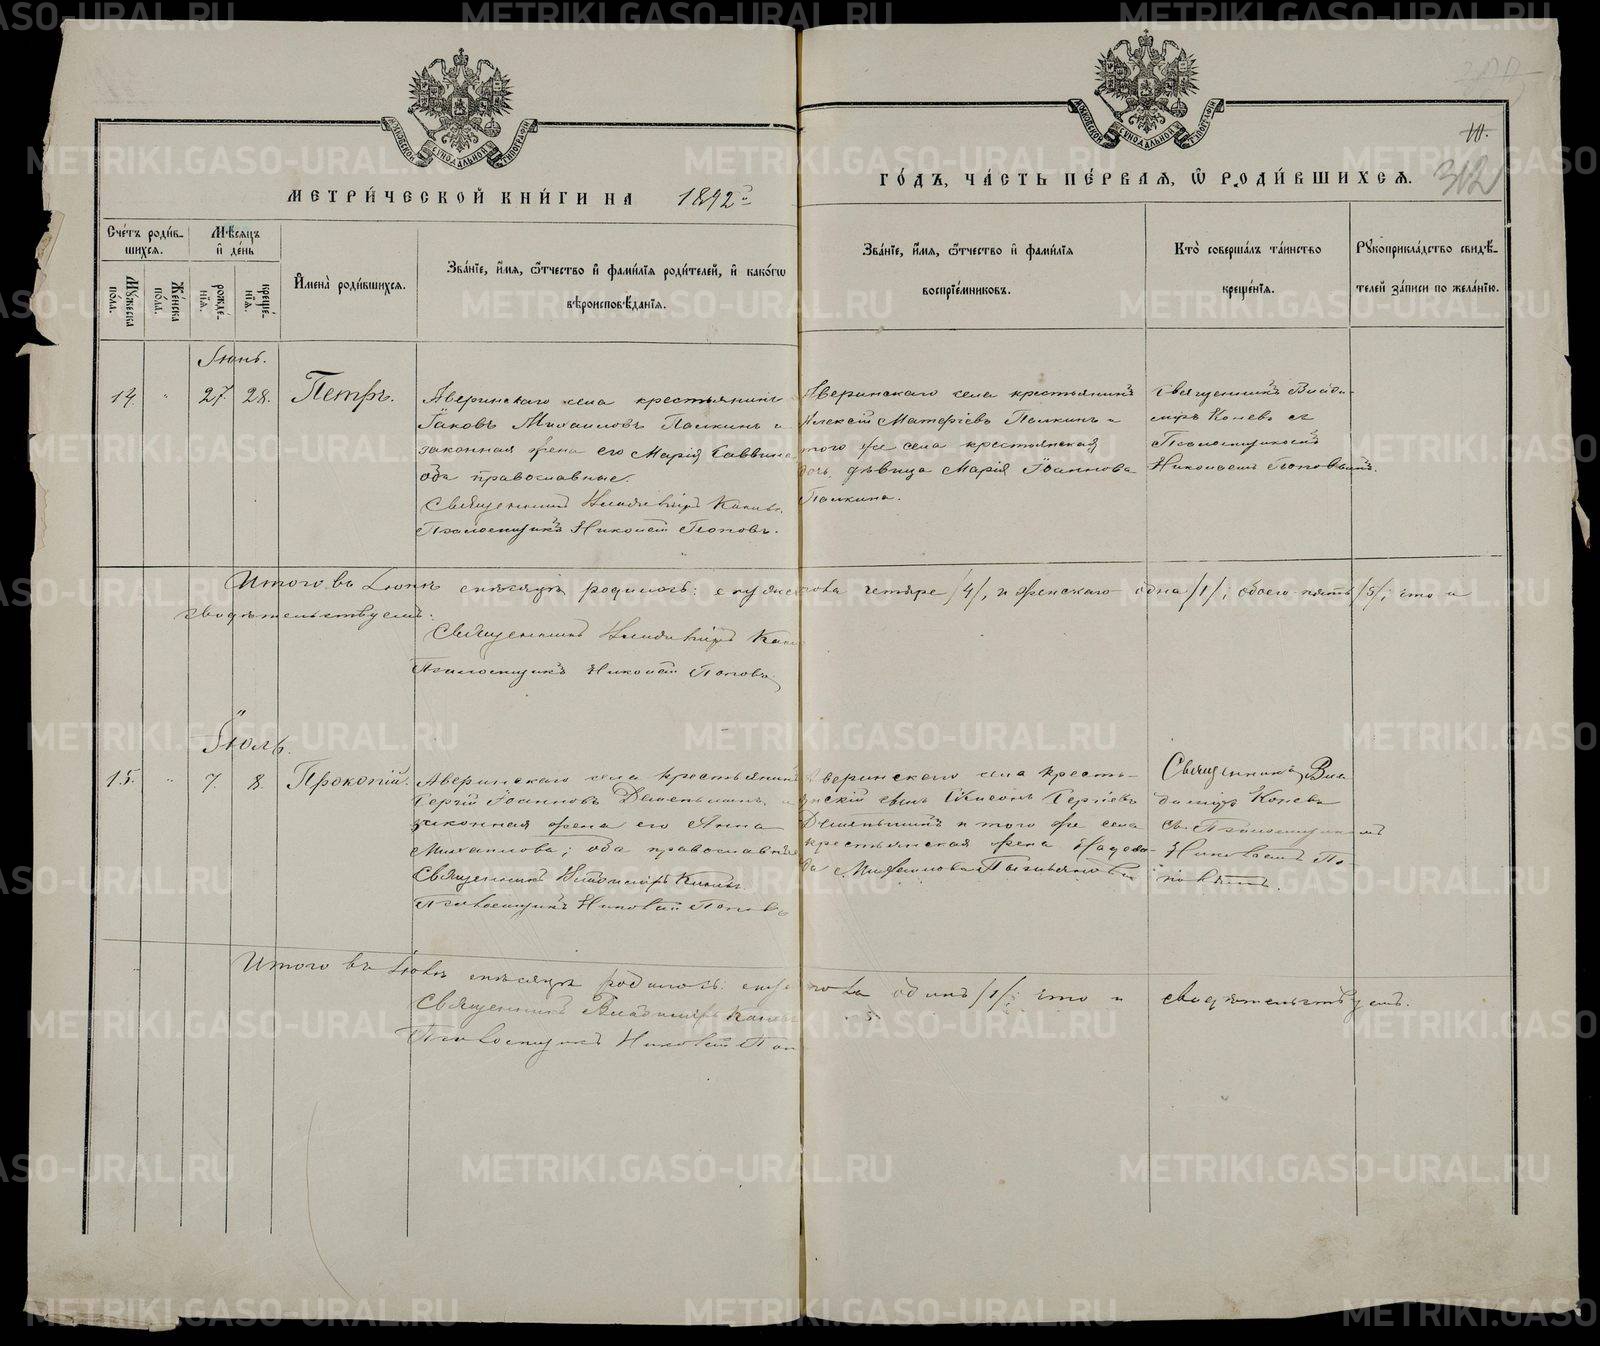 МЕТРИ́ЧЕСКОЙ КНИ́ГИ НА 1892й
ГО́ДЪ, ЧА́СТЬ ПЕ́РВАЯ, Ѡ РОДИ́ВШИХСЯ.
10.
312
Сче́тъ роди́в-
шихся.
Му́жеска по́ла.
Же́нска по́ла.
Мѣ́сяцъ и де́нь
рожде́нїя.
креще́нїя.
И҆мена̀ роди́вшихся.
Зва́нїе, и҆́мя, ѻ҆́тчество и҆ фами́лїя роди́телей, и҆ како́гѡ
вѣроисповѣ́данїя.
Зва́нїе, и҆́мя, ѻ҆́тчество и҆ фами́лїя
воспрїе́мниковъ.
Кто̀ соверша́лъ та́инство
креще́нїя.
Рꙋкоприкла́дство свидѣ́-
телей за́писи по жела́нїю.
Іюнь.
14. " 27. 28. Петръ.
Аверинскаго села крестьянинъ
Іаковъ Михаиловъ Палкинъ и
законная жена его Марія Саввина
оба православные.
Священникъ Владиміръ Коневъ.
Псаломщикъ Николай Поповъ.
Аверинскаго села крестьянинъ
Алексій Матѳіевъ Палкинъ и
того же села крестьянская
дочь, дѣвица Марія Іоаннова
Палкина.
Священникъ Влади-
міръ Коневъ съ
Псаломщикомъ
Николаемъ Поповымъ.
Итого въ Іюнѣ мѣсяцѣ родилось: мужескова четыре /4/, и женскаго одна /1/; обоего пять /5/; что и
свидѣтельствуемъ:
Священникъ Владиміръ Коневъ
Псаломщикъ Николай Поповъ
Іюль.
15. " 7. 8. Прокопій.
Аверинскаго села крестьянинъ
Сергій Іоанновъ Деменьшинъ и
законная жена его Анна
Михаилова; оба православные
Священникъ Владиміръ Коневъ.
Псаломщикъ Николай Поповъ
Аверинскаго села кресть-
янскій сынъ Симеонъ Сергіевъ
Деменьшинъ и того же села
крестьянская жена Надеж-
да Михаилова
Священникъ Вла
диміръ Коневъ
съ Псаломщикомъ
Николаемъ По
повымъ.
Итого въ Іюлѣ мѣсяцѣ родилось: мужескова одинъ /1/; что и свидѣтельствуемъ.
Священникъ Владиміръ Коневъ
Псаломщикъ Николай Поп
METRIKI.GASO-URAL.RU